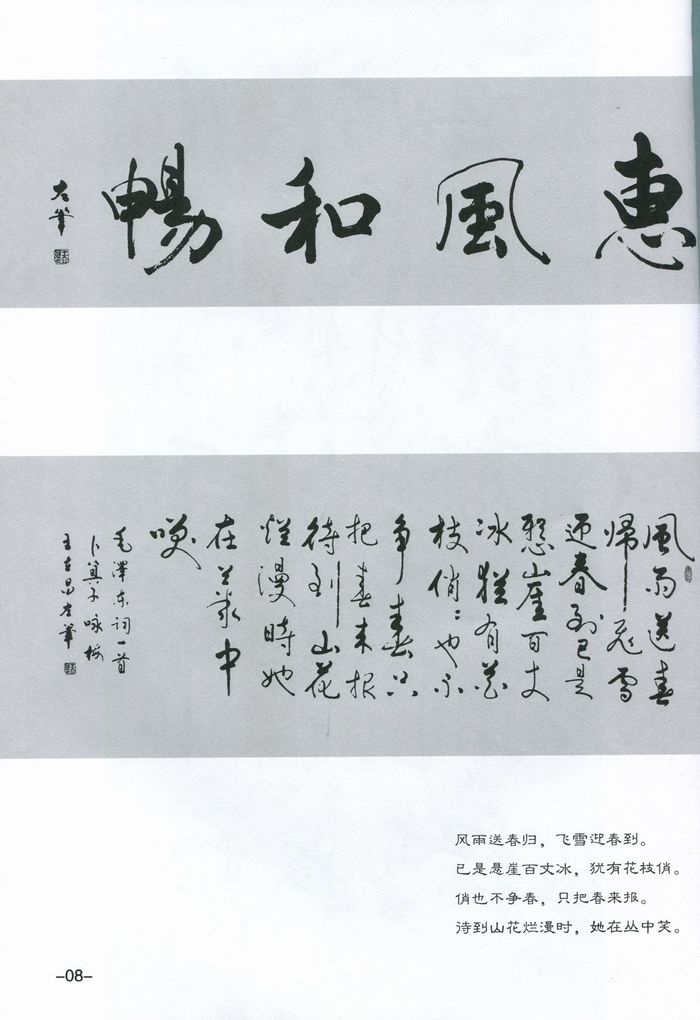 惠風和暢
風雨送春
歸飛雪
迎春到已是
懸崖百丈
冰猶有花
枝俏〻也不
争春只
把春来报
待到山花
爛漫時她
在叢中
咲
毛澤东词一首
卜算子咏梅
风雨送春归，飞雪迎春到。
已是悬崖百丈冰，犹有花枝俏。
俏也不争春，只把春来报。
待到山花烂漫时，她在丛中笑。
-08-